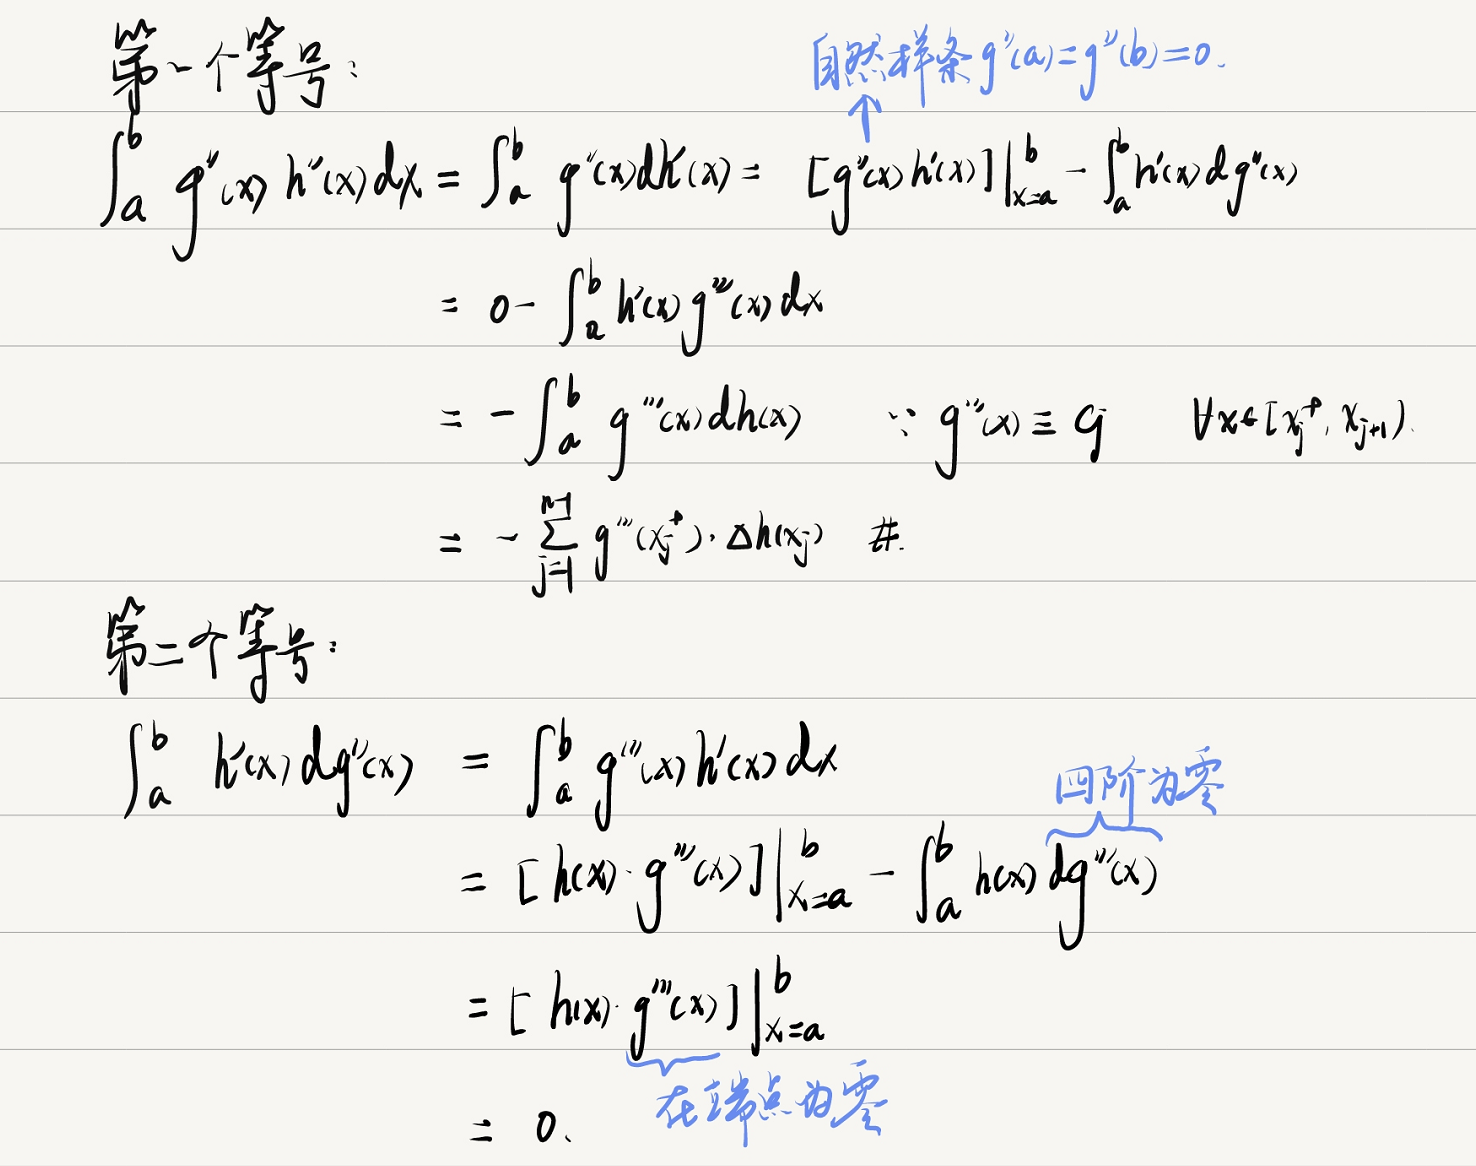 第一个等号：
自然样条 g''(a)=g''(b)=0.
↑
∫_a^b g''(x) h''(x) dx = ∫_a^b g''(x) dh'(x) = [g''(x) h'(x)]|_{x=a}^b - ∫_a^b h'(x) dg''(x)
= 0 - ∫_a^b h'(x) g'''(x) dx
= - ∫_a^b g'''(x) dh(x) ∵ g'''(x) ≡ Cj ∀x∈[x_j^+, x_{j+1}).
= - ∑_{j=1}^{n-1} g'''(x_j^+)·Δh(x_j) #.
第二个等号：
∫_a^b h'(x) dg''(x) = ∫_a^b g'''(x) h'(x) dx
四阶为零
= [h(x)·g'''(x)]|_{x=a}^b - ∫_a^b h(x) dg'''(x)
= [h(x)·g'''(x)]|_{x=a}^b
在端点为零
= 0.